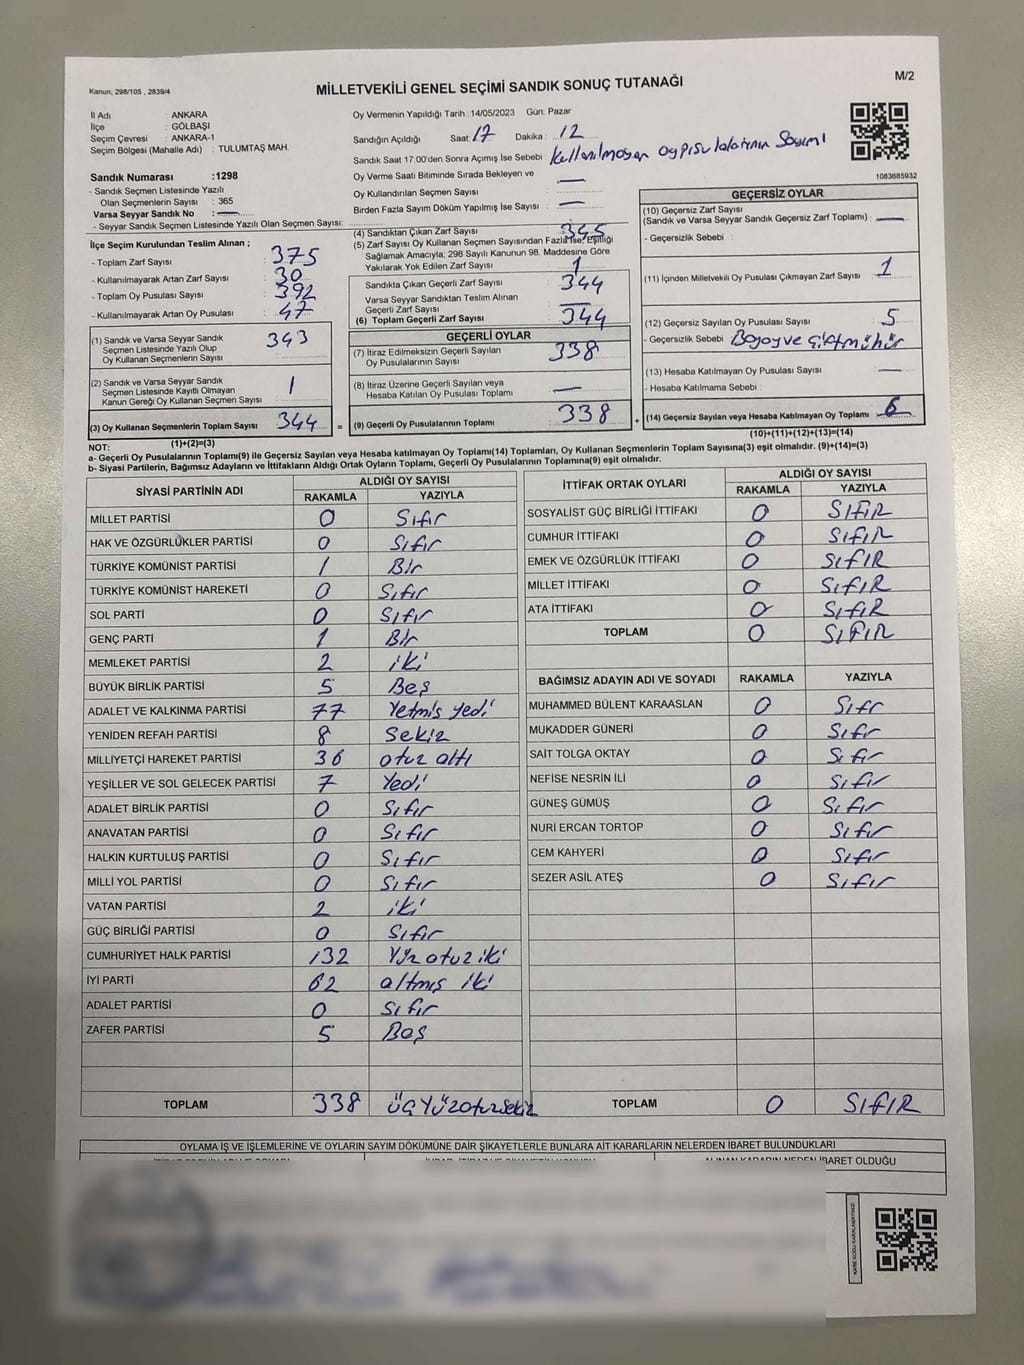 MİLLETVEKİLİ GENEL SEÇİMİ SANDIK SONUÇ TUTANAĞI
M/2
Kanun; 298/105 , 2839/4
İl Adı : ANKARA
İlçe : GÖLBAŞI
Seçim Çevresi : ANKARA-1
Seçim Bölgesi (Mahalle Adı) : TULUMTAŞ MAH.
Oy Vermenin Yapıldığı Tarih : 14/05/2023 Gün: Pazar
Sandığın Açıldığı Saat: 17 Dakika : 12
Sandık Saat 17.00'den Sonra Açımış İse Sebebi : Kullanılmayan oy pusulalarının Sayımı
Oy Verme Saati Bitiminde Sırada Bekleyen ve
Oy Kullandırılan Seçmen Sayısı : —
Birden Fazla Sayım Döküm Yapılmış İse Sayısı : —
1083685932
Sandık Numarası :1298
- Sandık Seçmen Listesinde Yazılı
Olan Seçmenlerin Sayısı : 365
Varsa Seyyar Sandık No : —
- Seyyar Sandık Seçmen Listesinde Yazılı Olan Seçmen Sayısı:
İlçe Seçim Kurulundan Teslim Alınan ;
- Toplam Zarf Sayısı : 375
- Kullanılmayarak Artan Zarf Sayısı : 30
- Toplam Oy Pusulası Sayısı : 392
- Kullanılmayarak Artan Oy Pusulası : 47
(1) Sandık ve Varsa Seyyar Sandık
Seçmen Listesinde Yazılı Olup
Oy Kullanan Seçmenlerin Sayısı : 343
(2) Sandık ve Varsa Seyyar Sandık
Seçmen Listesinde Kayıtlı Olmayan
Kanun Gereği Oy Kullanan Seçmen Sayısı : 1
(3) Oy Kullanan Seçmenlerin Toplam Sayısı : 344
(1)+(2)=(3)
(4) Sandıktan Çıkan Zarf Sayısı : 345
(5) Zarf Sayısı Oy Kullanan Seçmen Sayısından Fazla İse; Eşitliği
Sağlamak Amacıyla; 298 Sayılı Kanunun 98. Maddesine Göre
Yakılarak Yok Edilen Zarf Sayısı : 1
Sandıkta Çıkan Geçerli Zarf Sayısı : 344
Varsa Seyyar Sandıktan Teslim Alınan
Geçerli Zarf Sayısı : —
(6) Toplam Geçerli Zarf Sayısı : 344
GEÇERLİ OYLAR
(7) İtiraz Edilmeksizin Geçerli Sayılan
Oy Pusulalarının Sayısı : 338
(8) İtiraz Üzerine Geçerli Sayılan veya
Hesaba Katılan Oy Pusulası Toplamı : —
= (9) Geçerli Oy Pusulalarının Toplamı : 338
GEÇERSİZ OYLAR
(10) Geçersiz Zarf Sayısı
(Sandık ve Varsa Seyyar Sandık Geçersiz Zarf Toplamı) : —
- Geçersizlik Sebebi :
(11) İçinden Milletvekili Oy Pusulası Çıkmayan Zarf Sayısı : 1
(12) Geçersiz Sayılan Oy Pusulası Sayısı : 5
- Geçersizlik Sebebi
(13) Hesaba Katılmayan Oy Pusulası Sayısı : —
- Hesaba Katılmama Sebebi :
+ (14) Geçersiz Sayılan veya Hesaba Katılmayan Oy Toplamı : 6
(10)+(11)+(12)+(13)=(14)
NOT:
a- Geçerli Oy Pusulalarının Toplamı(9) ile Geçersiz Sayılan veya Hesaba katılmayan Oy Toplamı(14) Toplamları, Oy Kullanan Seçmenlerin Toplam Sayısına(3) eşit olmalıdır. (9)+(14)=(3)
b- Siyasi Partilerin, Bağımsız Adayların ve İttifakların Aldığı Ortak Oyların Toplamı, Geçerli Oy Pusulalarının Toplamına(9) eşit olmalıdır.
SİYASİ PARTİNİN ADI ALDIĞI OY SAYISI
RAKAMLA YAZIYLA
MİLLET PARTİSİ 0 Sıfır
HAK VE ÖZGÜRLÜKLER PARTİSİ 0 Sıfır
TÜRKİYE KOMÜNİST PARTİSİ 1 Bir
TÜRKİYE KOMÜNİST HAREKETİ 0 Sıfır
SOL PARTİ 0 Sıfır
GENÇ PARTİ 1 Bir
MEMLEKET PARTİSİ 2 iki
BÜYÜK BİRLİK PARTİSİ 5 Beş
ADALET VE KALKINMA PARTİSİ 77 Yetmiş yedi
YENİDEN REFAH PARTİSİ 8 Sekiz
MİLLİYETÇİ HAREKET PARTİSİ 36 otuz altı
YEŞİLLER VE SOL GELECEK PARTİSİ 7 Yedi
ADALET BİRLİK PARTİSİ 0 Sıfır
ANAVATAN PARTİSİ 0 Sıfır
HALKIN KURTULUŞ PARTİSİ 0 Sıfır
MİLLİ YOL PARTİSİ 0 Sıfır
VATAN PARTİSİ 2 iki
GÜÇ BİRLİĞİ PARTİSİ 0 Sıfır
CUMHURİYET HALK PARTİSİ 132 Yüz otuz iki
İYİ PARTİ 62 altmış iki
ADALET PARTİSİ 0 Sıfır
ZAFER PARTİSİ 5 Beş
TOPLAM 338 ÜÇYÜZotuzsekiz
İTTİFAK ORTAK OYLARI ALDIĞI OY SAYISI
RAKAMLA YAZIYLA
SOSYALİST GÜÇ BİRLİĞİ İTTİFAKI 0 SIFIR
CUMHUR İTTİFAKI 0 SIFIR
EMEK VE ÖZGÜRLÜK İTTİFAKI 0 SIFIR
MİLLET İTTİFAKI 0 SIFIR
ATA İTTİFAKI 0 SIFIR
TOPLAM 0 SIFIR
BAĞIMSIZ ADAYIN ADI VE SOYADI RAKAMLA YAZIYLA
MUHAMMED BÜLENT KARAASLAN 0 Sıfır
MUKADDER GÜNERİ 0 Sıfır
SAİT TOLGA OKTAY 0 Sıfır
NEFİSE NESRİN İLİ 0 Sıfır
GÜNEŞ GÜMÜŞ 0 Sıfır
NURİ ERCAN TORTOP 0 Sıfır
CEM KAHYERİ 0 Sıfır
SEZER ASİL ATEŞ 0 Sıfır
TOPLAM 0 SIFIR
OYLAMA İŞ VE İŞLEMLERİNE VE OYLARIN SAYIM DÖKÜMÜNE DAİR ŞİKAYETLERLE BUNLARA AİT KARARLARIN NELERDEN İBARET BULUNDUKLARI
ALINAN KARARIN NEDEN İBARET OLDUĞU